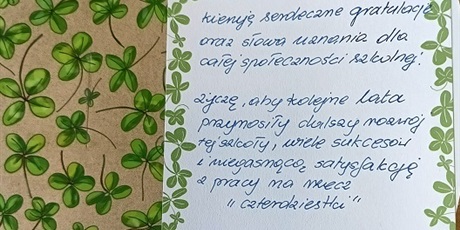 kieruję serdeczne gratulacje
oraz słowa uznania dla
całej społeczności szkolnej.
Życzę, aby kolejne lata
przynosiły dalszy rozwój
tej szkoły, wiele sukcesów
i niegasnącą satysfakcję
z pracy na rzecz
"czterdziestki"